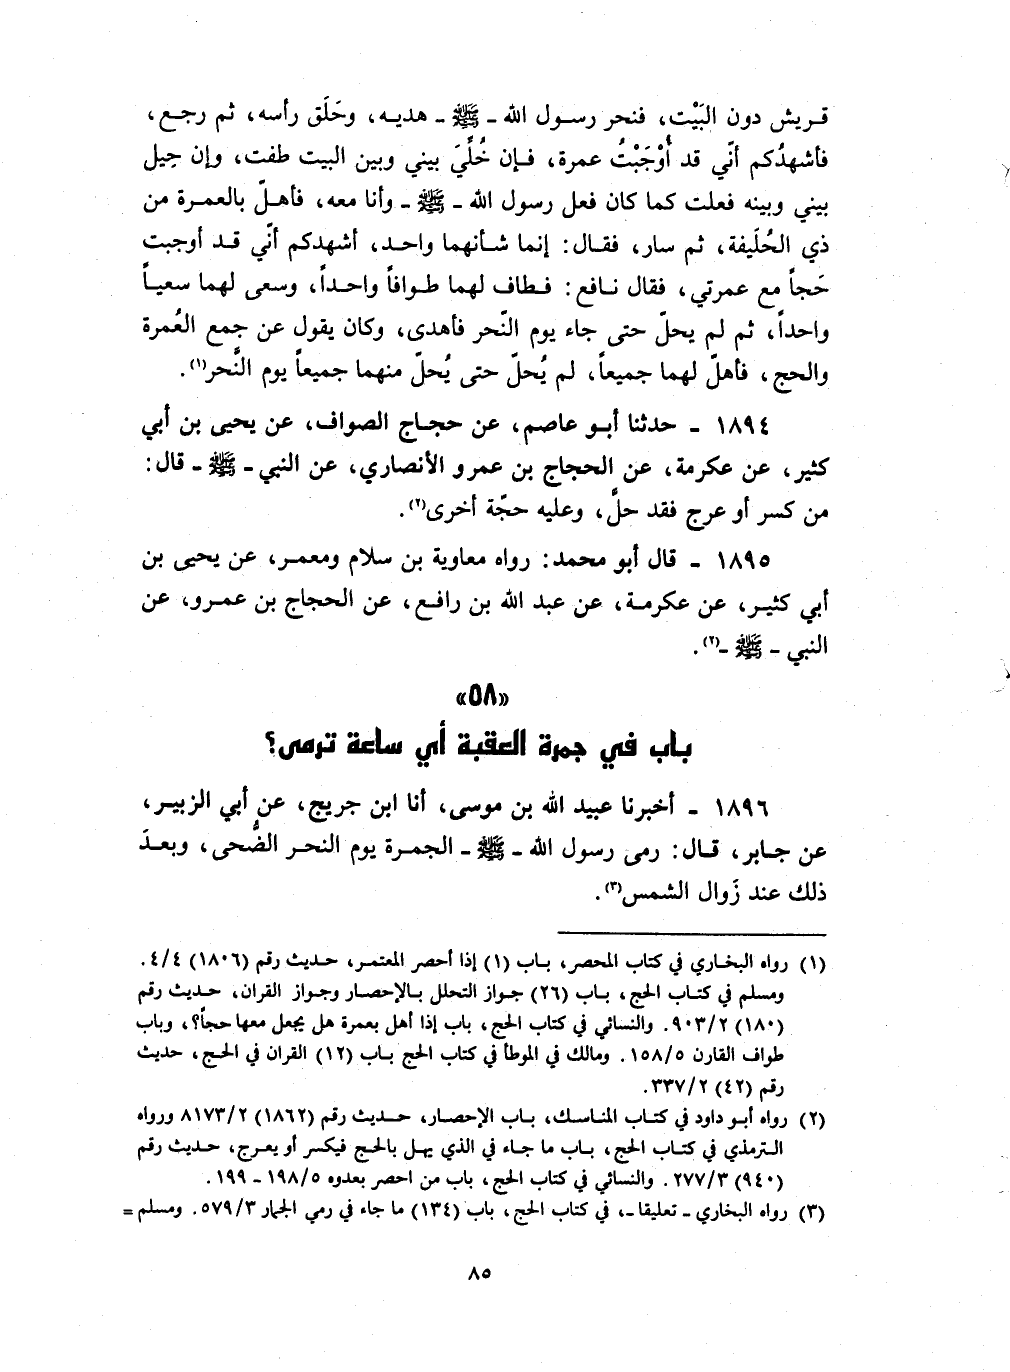 قريش دون البَيْت، فنحر رسول الله ـ ﷺ ـ هديه، وحَلَق رأسه، ثم رجع،
فأشهدُكم أنّي قد أُوْجَبْتُ عمرة، فإن خُلِّيَ بيني وبين البيت طفت، وإن حِيل
بيني وبينه فعلت كما كان فعل رسول الله ـ ﷺ ـ وأنا معه، فأهلّ بالعمرة من
ذي الحُلَيفة، ثم سار، فقال: إنما شأنهما واحد، أشهدكم أنّي قد أوجبت
حَجاً مع عمرتي، فقال نافع: فطاف لهما طوافاً واحداً، وسعى لهما سعياً
واحداً، ثم لم يحلّ حتى جاء يوم النّحر فأهدى، وكان يقول عن جمع العُمرة
والحج، فأهلّ لهما جميعاً، لم يُحلّ حتى يُحلّ منهما جميعاً يوم النَّحر(١).
١٨٩٤ ـ حدثنا أبو عاصم، عن حجاج الصواف، عن يحيى بن أبي
كثير، عن عكرمة، عن الحجاج بن عمرو الأنصاري، عن النبي ـ ﷺ ـ قال:
من كسر أو عرج فقد حلَّ، وعليه حجّة أخرى(٢).
١٨٩٥ ـ قال أبو محمد: رواه معاوية بن سلام ومعمر، عن يحيى بن
أبي كثير، عن عكرمة، عن عبد الله بن رافع، عن الحجاج بن عمرو، عن
النبي ـ ﷺ ـ(٢).
«٥٨»
باب في جمرة العقبة أي ساعة ترمى؟
١٨٩٦ ـ أخبرنا عبيد الله بن موسى، أنا ابن جريج، عن أبي الزبير،
عن جابر، قال: رمى رسول الله ـ ﷺ ـ الجمرة يوم النحر الضُّحى، وبعدَ
ذلك عند زَوال الشمس(٣).
(١) رواه البخاري في كتاب المحصر، باب (١) إذا أحصر المعتمر، حديث رقم (١٨٠٦) ٤/٤.
ومسلم في كتاب الحج، باب (٢٦) جواز التحلل بالإحصار وجواز القران، حديث رقم
(١٨٠) ٩٠٣/٢. والنسائي في كتاب الحج، باب إذا أهل بعمرة هل يجعل معها حجاً؟، وباب
طواف القارن ١٥٨/٥. ومالك في الموطأ في كتاب الحج باب (١٢) القران في الحج، حديث
رقم (٤٢) ٣٣٧/٢.
(٢) رواه أبو داود في كتاب المناسك، باب الإحصار، حديث رقم (١٨٦٢) ٨١٧٣/٢ ورواه
الترمذي في كتاب الحج، باب ما جاء في الذي يهل بالحج فيكسر أو يعرج، حديث رقم
(٩٤٠) ٢٧٧/٣. والنسائي في كتاب الحج، باب من احصر بعدوه ١٩٨/٥ ـ ١٩٩.
(٣) رواه البخاري ـ تعليقا ـ، في كتاب الحج، باب (١٣٤) ما جاء في رمي الجمار ٥٧٩/٣. ومسلم =
٨٥